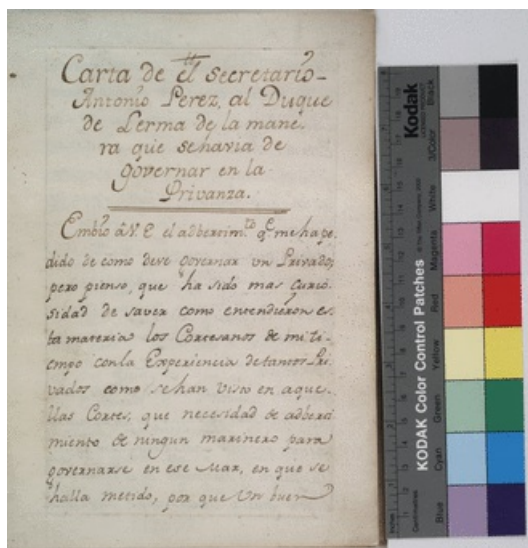 Carta de el secretario
Antonio Perez, al Duque
de Lerma de la mane.
ra que se havia de
governar en la
Privanza.
Embio â V. E el adbertim.to q.e me ha pe
dido de como deve governar vn Privado,
pero pienso, que ha sido mas curio
sidad de saver como entendieron es
ta materia los Cortesanos de mi ti-
empo con la Experiencia de tantos Pri
vados como se han visto en aque
llas Cortes, que necesidad de adberti
miento de ningun marinero para
governarse en ese mar, en que se
halla metido, por que Un buen
Kodak
LICENSED PRODUCT
KODAK Color Control Patches
Blue
Cyan
Green
Yellow
Red
Magenta
White
3/Color
Black
Centimetres
Inches